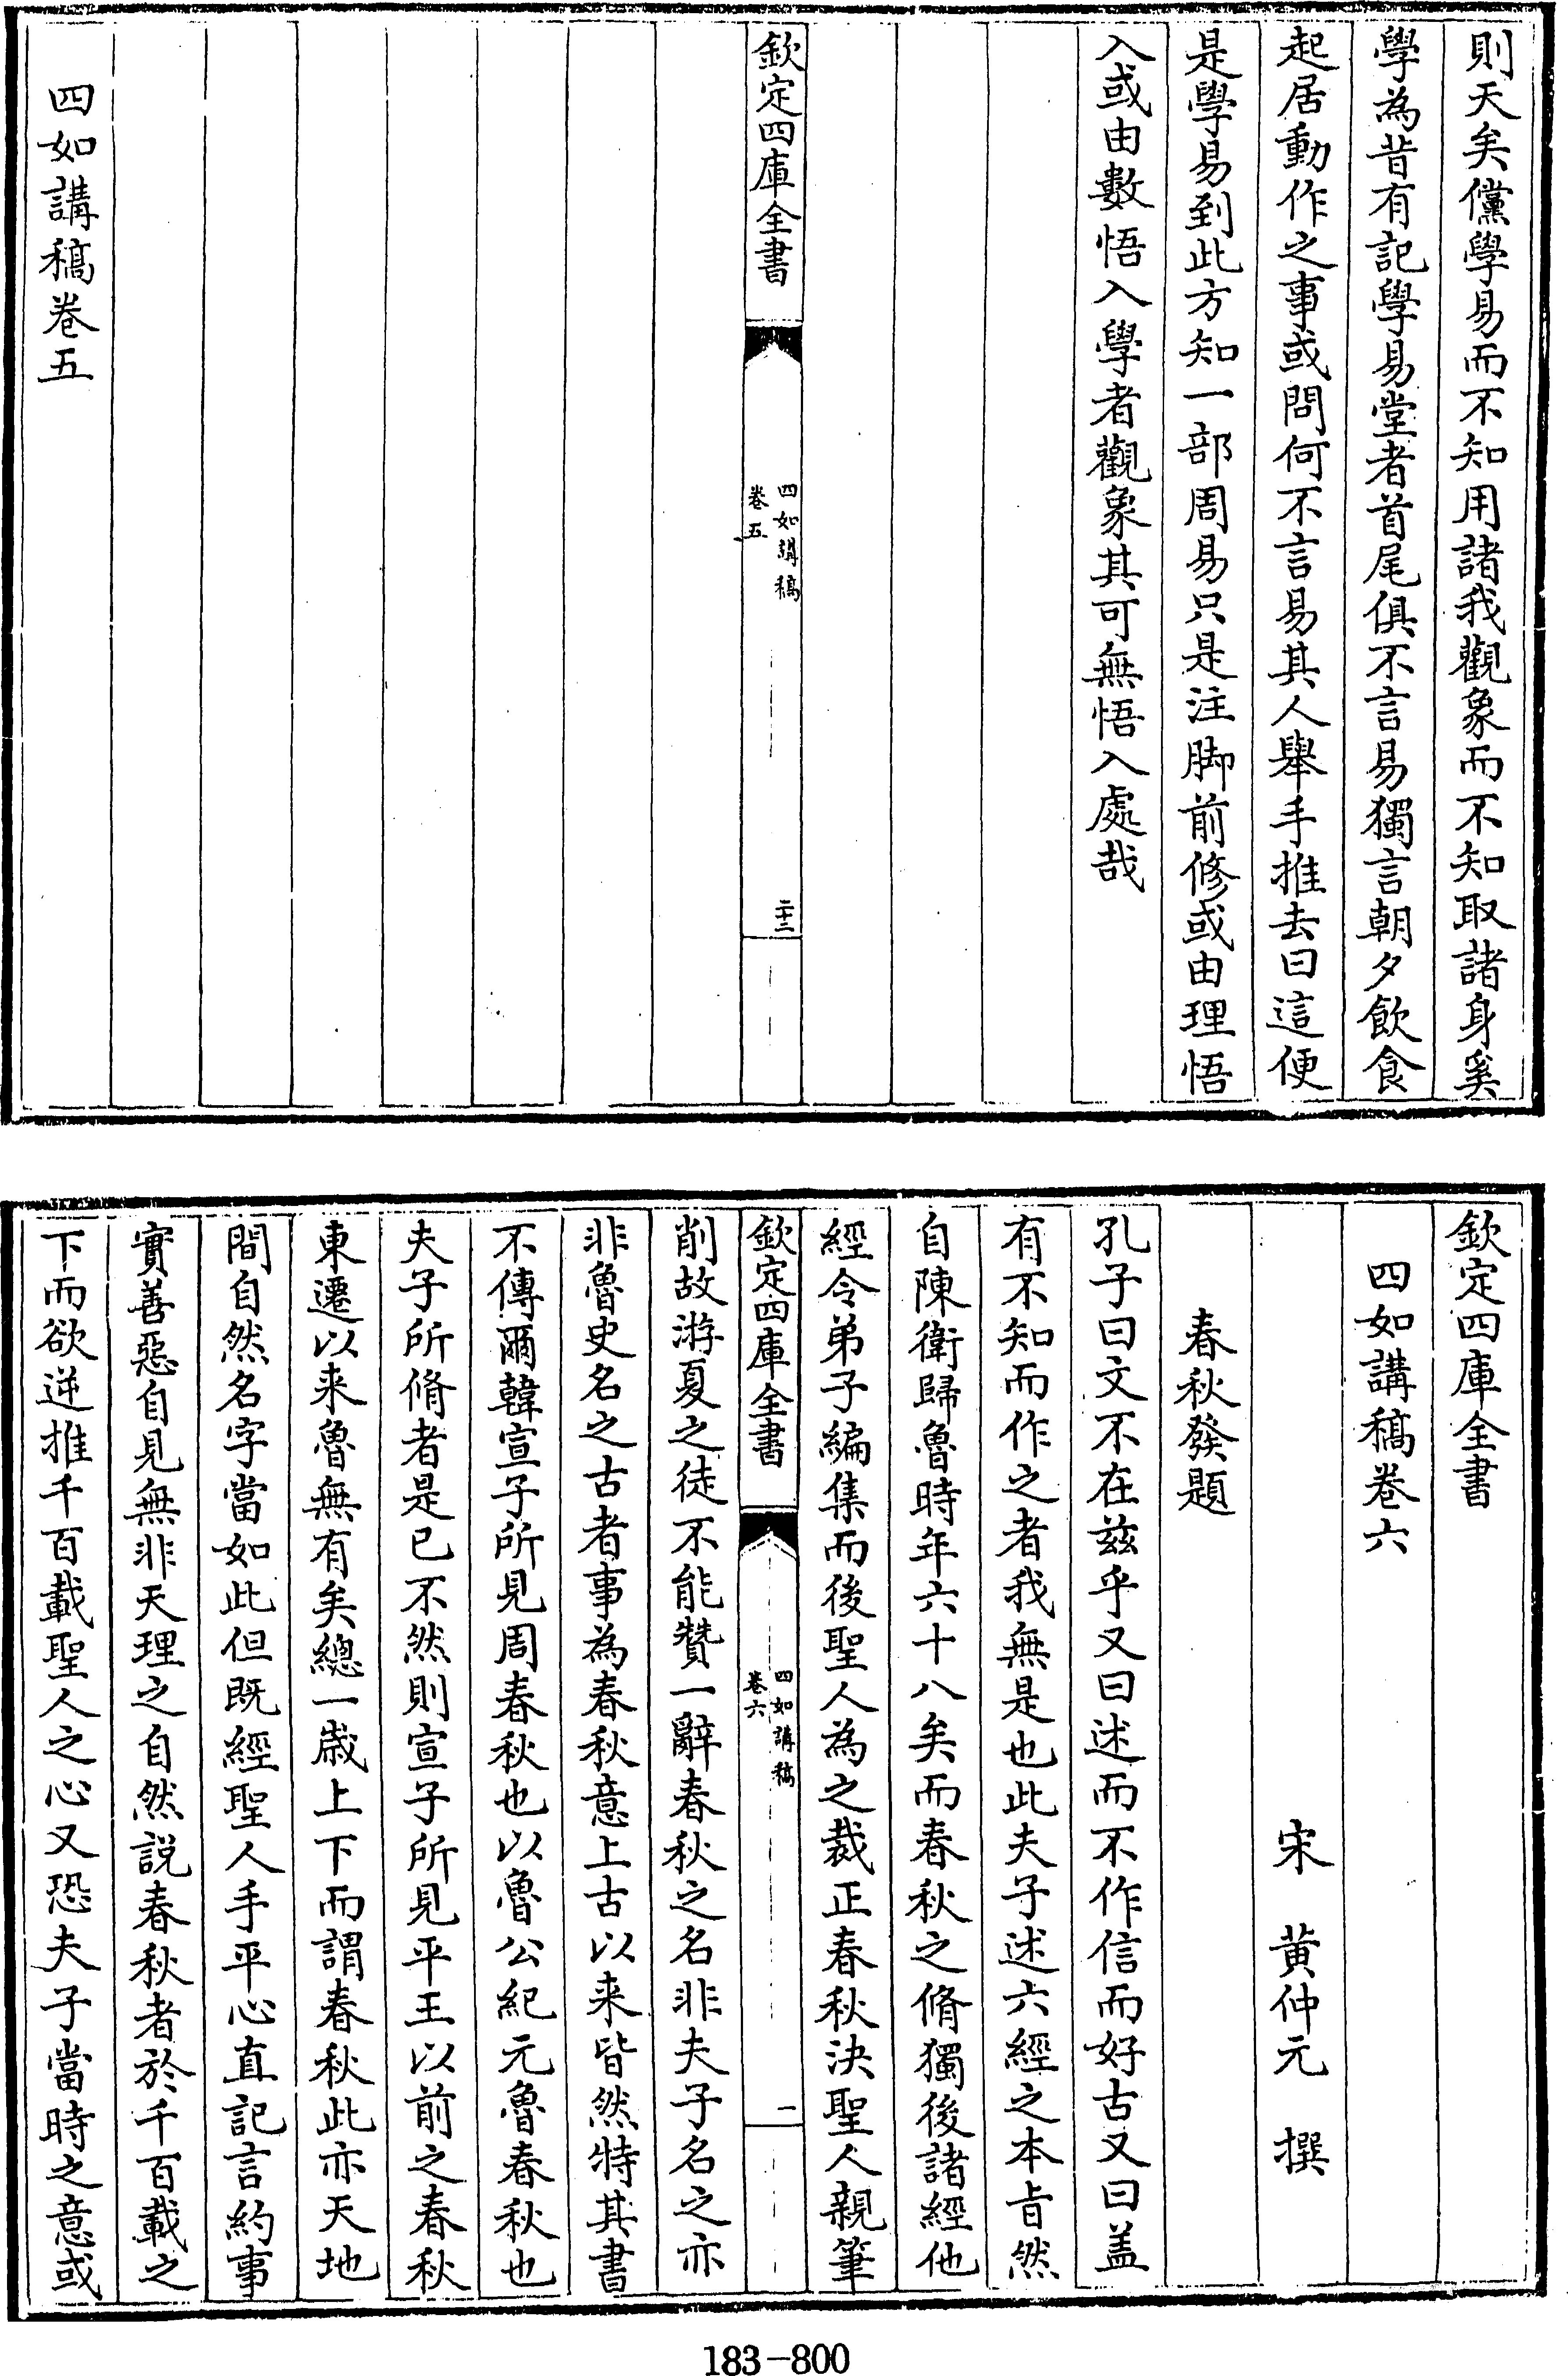 則天矣儻學易而不知用諸我觀象而不知取諸身奚
學為昔有記學易堂者首尾俱不言易獨言朝夕飲食
起居動作之事或問何不言易其人舉手推去曰這便
是學易到此方知一部周易只是注脚前修或由理悟
入或由數悟入學者觀象其可無悟入處哉
欽定四庫全書
四如講稿
卷五
二十三
四如講稿卷五
欽定四庫全書
四如講稿卷六
宋 黄仲元 撰
春秋發題
孔子曰文不在兹乎又曰述而不作信而好古又曰盖
有不知而作之者我無是也此夫子述六經之本旨然
自陳衛歸魯時年六十八矣而春秋之脩獨後諸經他
經令弟子編集而後聖人為之裁正春秋決聖人親筆
欽定四庫全書
四如講稿
卷六
一
削故游夏之徒不能贊一辭春秋之名非夫子名之亦
非魯史名之古者事為春秋意上古以来皆然特其書
不傳爾韓宣子所見周春秋也以魯公紀元魯春秋也
夫子所脩者是已不然則宣子所見平王以前之春秋
東遷以来魯無有矣總一歲上下而謂春秋此亦天地
間自然名字當如此但既經聖人手平心直記言約事
實善惡自見無非天理之自然説春秋者於千百載之
下而欲逆推千百載聖人之心又恐夫子當時之意或
183-800